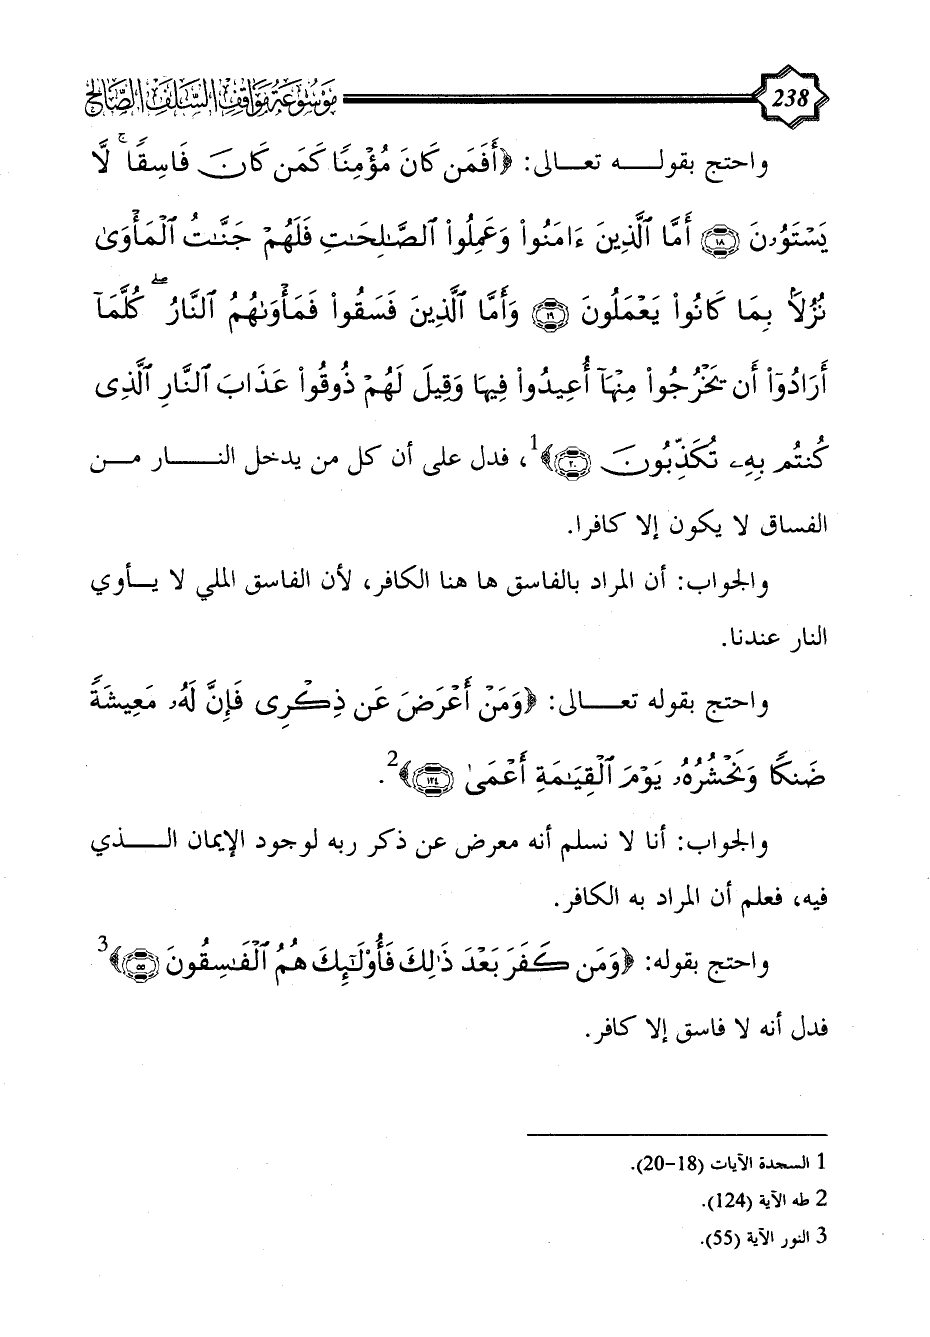 238 موسوعة مواقف السلف الصالح
واحتج بقوله تعالى: ﴿أَفَمَن كَانَ مُؤْمِنًا كَمَن كَانَ فَاسِقًا ۚ لَّا
يَسْتَوُۥنَ ﴿١٨﴾ أَمَّا ٱلَّذِينَ ءَامَنُوا۟ وَعَمِلُوا۟ ٱلصَّـٰلِحَـٰتِ فَلَهُمْ جَنَّـٰتُ ٱلْمَأْوَىٰ
نُزُلًۢا بِمَا كَانُوا۟ يَعْمَلُونَ ﴿١٩﴾ وَأَمَّا ٱلَّذِينَ فَسَقُوا۟ فَمَأْوَىٰهُمُ ٱلنَّارُ ۖ كُلَّمَآ
أَرَادُوٓا۟ أَن يَخْرُجُوا۟ مِنْهَآ أُعِيدُوا۟ فِيهَا وَقِيلَ لَهُمْ ذُوقُوا۟ عَذَابَ ٱلنَّارِ ٱلَّذِى
كُنتُم بِهِۦ تُكَذِّبُونَ ﴿٢٠﴾﴾1، فدل على أن كل من يدخل النار من
الفساق لا يكون إلا كافرا.
والجواب: أن المراد بالفاسق ها هنا الكافر، لأن الفاسق الملي لا يأوي
النار عندنا.
واحتج بقوله تعالى: ﴿وَمَنْ أَعْرَضَ عَن ذِكْرِى فَإِنَّ لَهُۥ مَعِيشَةً
ضَنكًا وَنَحْشُرُهُۥ يَوْمَ ٱلْقِيَـٰمَةِ أَعْمَىٰ ﴿١٢٤﴾﴾2.
والجواب: أنا لا نسلم أنه معرض عن ذكر ربه لوجود الإيمان الذي
فيه، فعلم أن المراد به الكافر.
واحتج بقوله: ﴿وَمَن كَفَرَ بَعْدَ ذَٰلِكَ فَأُو۟لَـٰٓئِكَ هُمُ ٱلْفَـٰسِقُونَ ﴿٥٥﴾﴾3
فدل أنه لا فاسق إلا كافر.
1 السجدة الآيات (18-20).
2 طه الآية (124).
3 النور الآية (55).